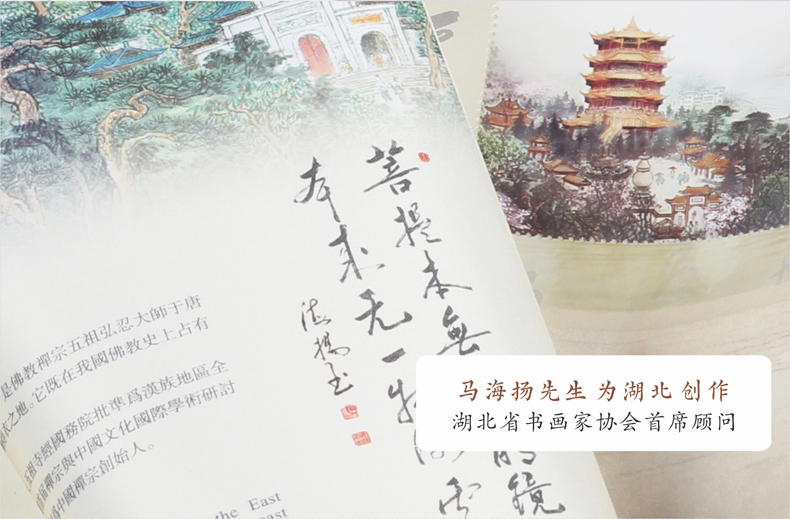 菩提本無
鏡
本来无一物
海揚
是佛教禪宗五祖弘忍大師于唐
衣之地。它既在我國佛教史上占有
祖寺經國務院批準爲漢族地區全
届禪宗與中國文化國際學術研討
中國禪宗創始人。
the East
马海扬先生为湖北创作
湖北省书画家协会首席顾问